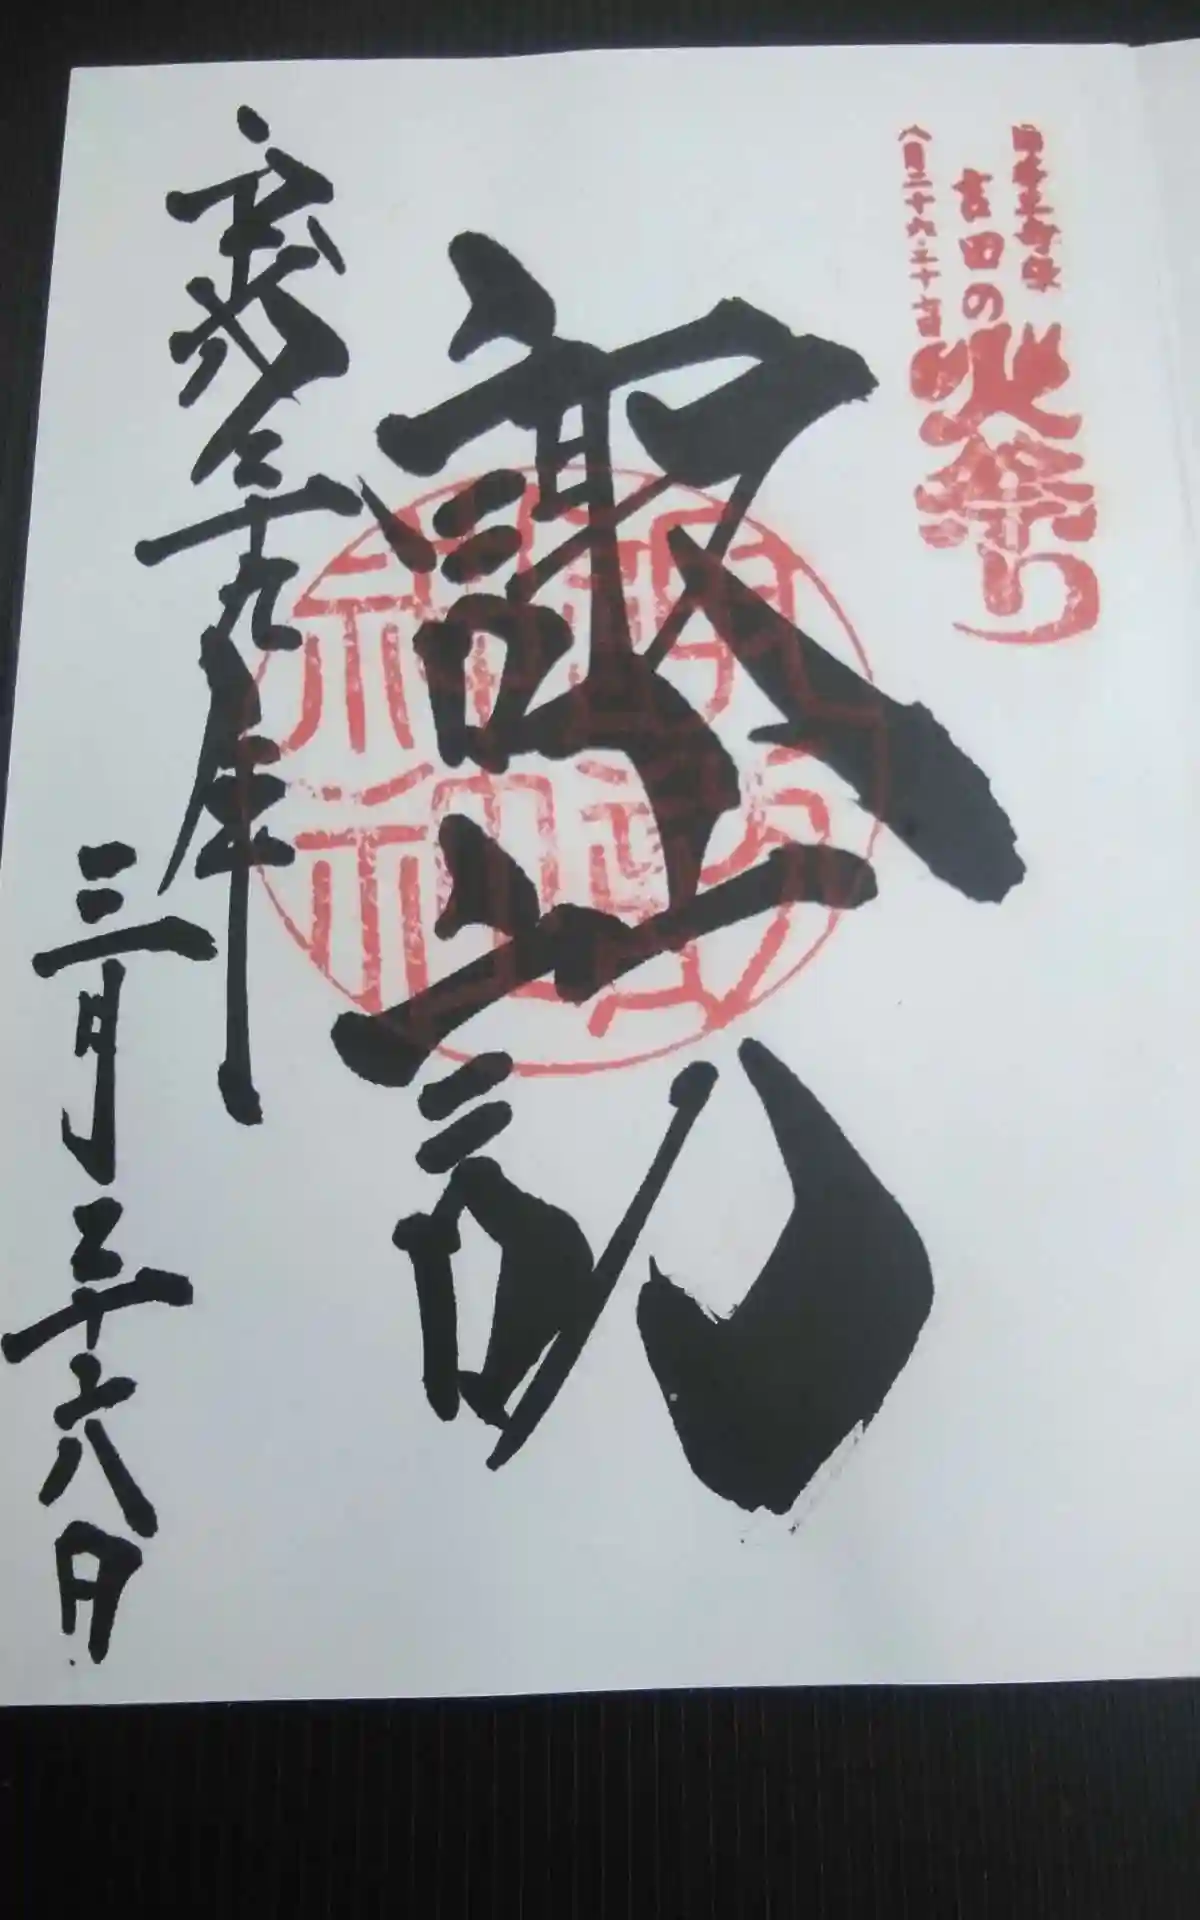 日本三奇祭
吉田の火祭り
八月二十六・二十七日
諏訪
平成二十九年
三月二十六日